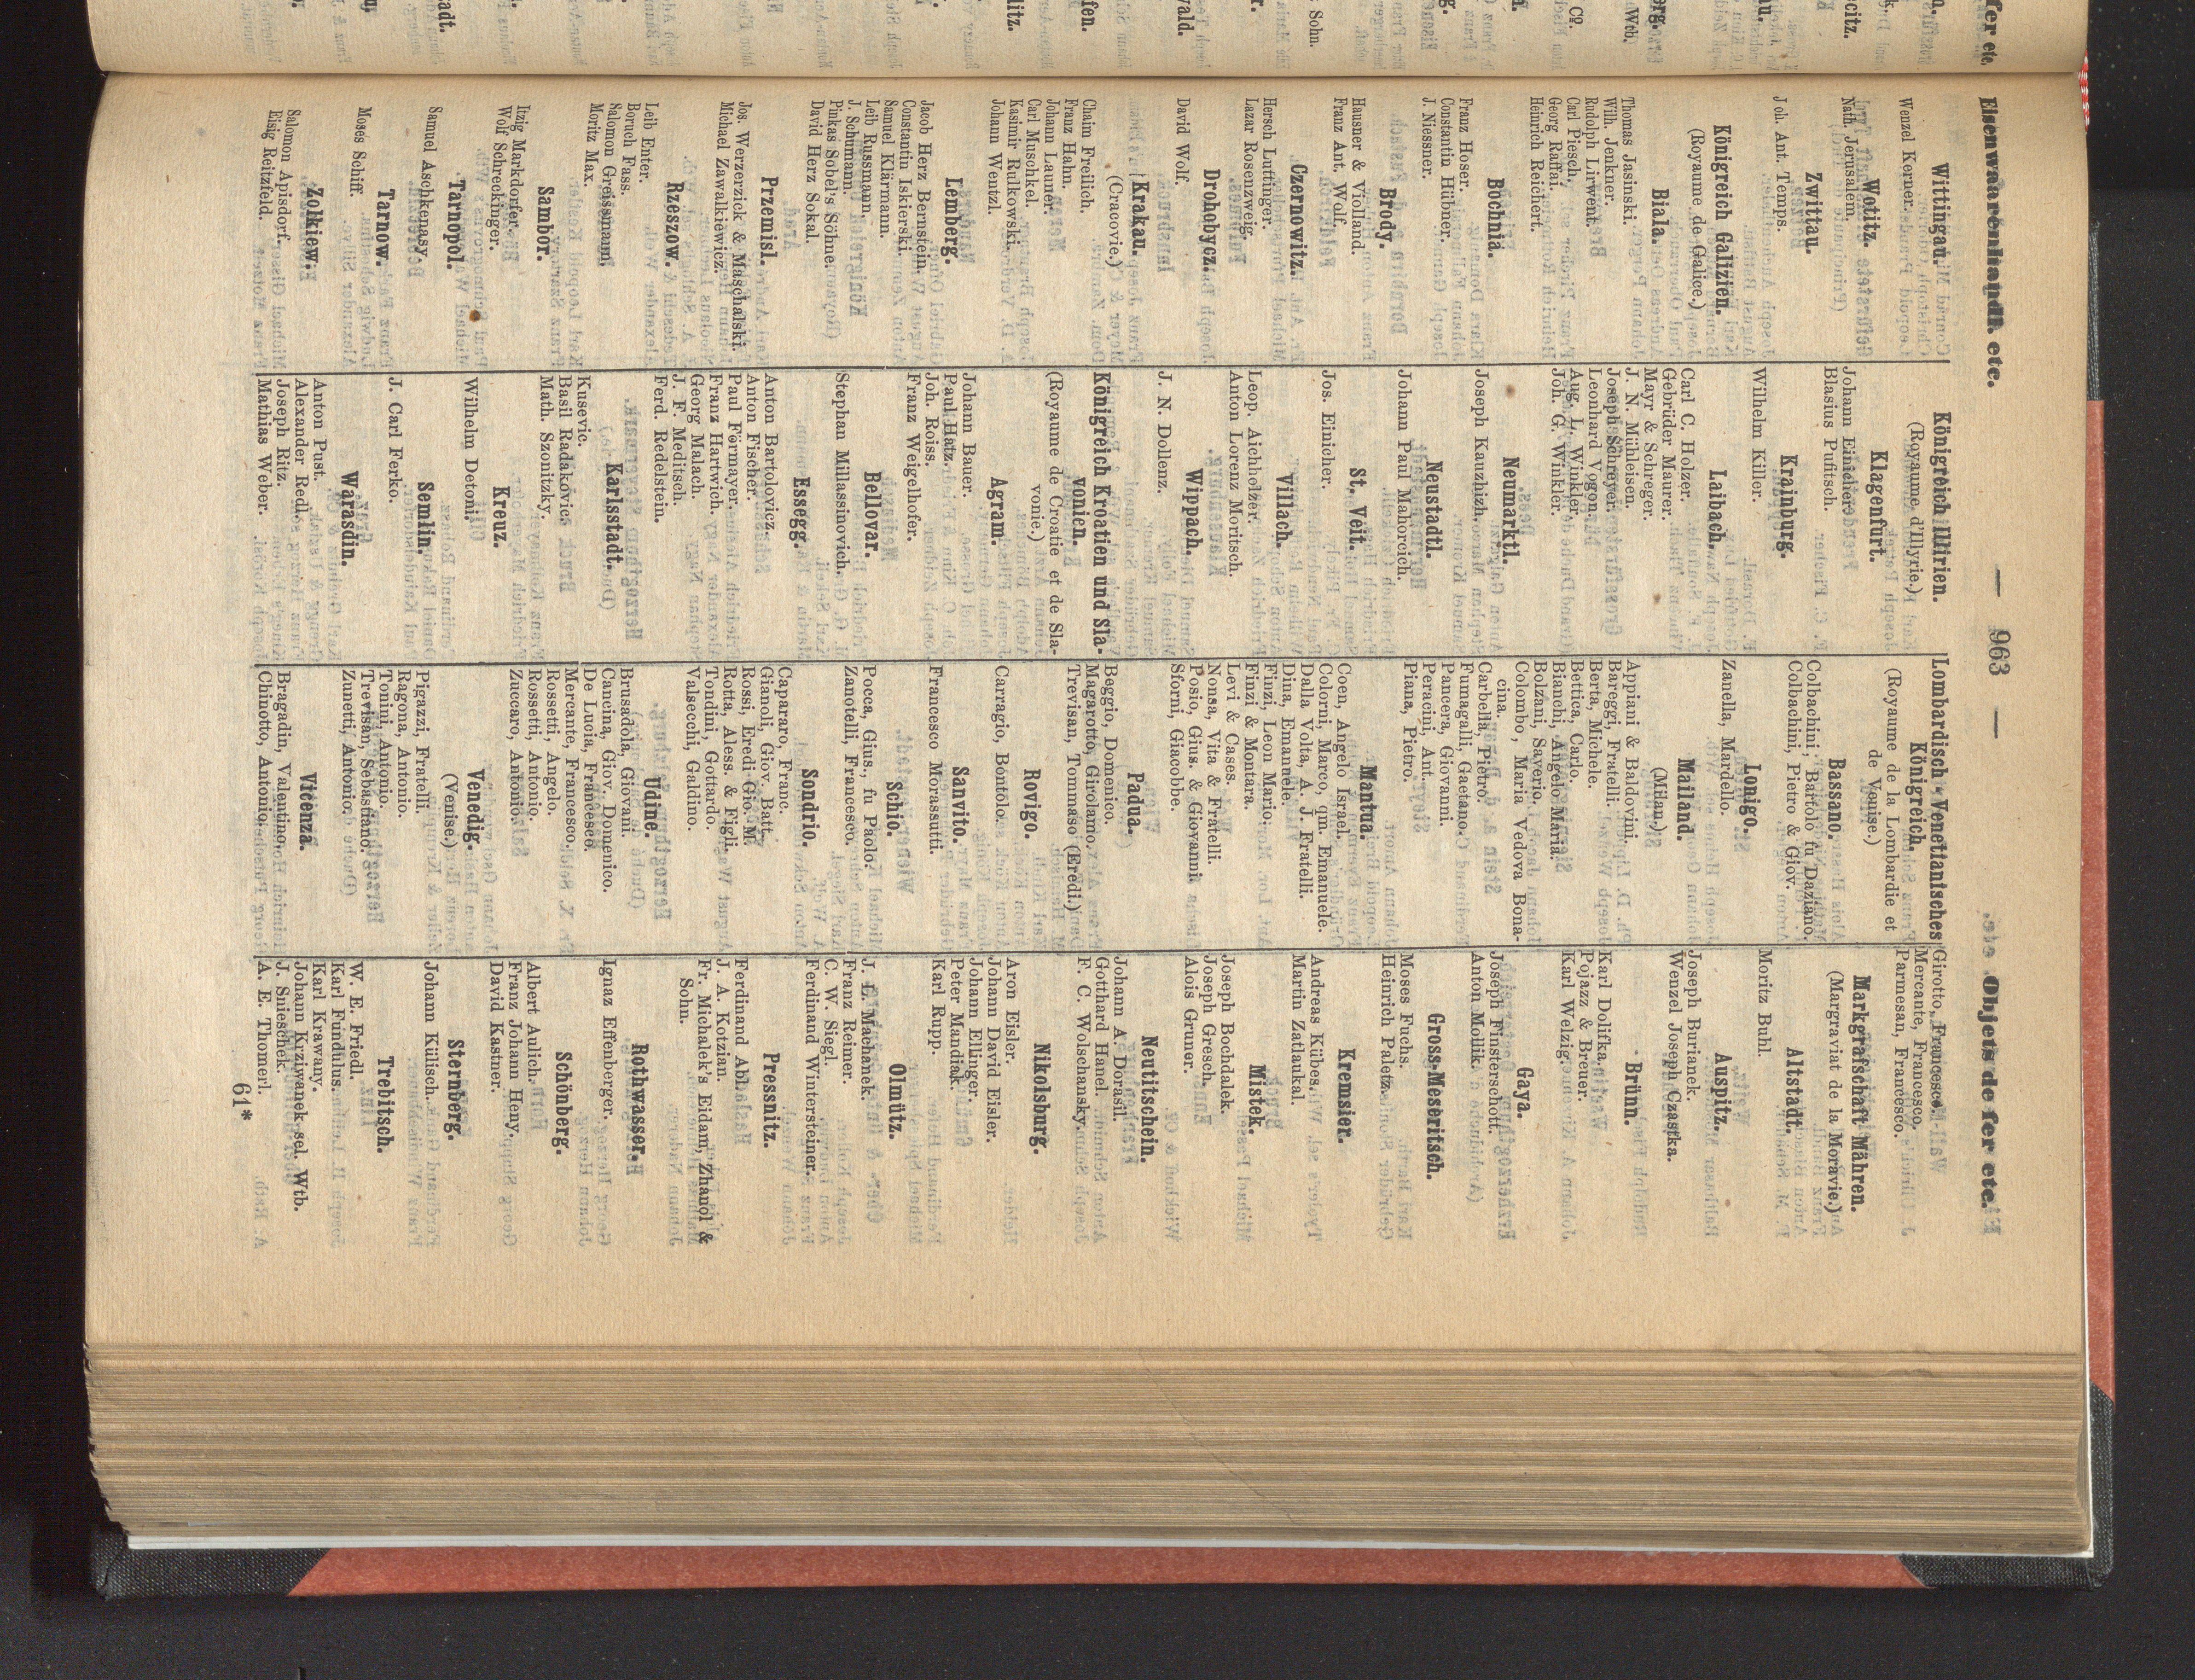 Eisenwaarenhandl. etc.
— 963 —
Objets de fer etc.
Wittingau.
Wenzel Kerner.
Wotitz.
Nath. Jerusalem.
Zwittau.
Joh. Ant. Temps.
Königreich Galizien.
(Royaume de Galice.)
Biala.
Thomas Jasinski.
Wilh. Jenkner.
Rudolph Lirwent.
Carl Piesch.
Georg Raffai.
Heinrich Reichert.
Bochnia.
Franz Hoser.
Constantin Hübner.
J. Niessner.
Brody.
Hausner & Violland.
Franz Ant. Wolf.
Czernowitz.
Hersch Luttinger.
Lazar Rosenzweig.
Drohobycz.
David Wolf.
Krakau.
(Cracovie.)
Chaim Freilich.
Franz Hahn.
Johann Launer.
Carl Muschkel.
Kasimir Rulkowski.
Johann Wentzl.
Lemberg.
Jacob Herz Bernstein.
Constantin Iskierski.
Samuel Klärmann.
Leib Russmann.
J. Schumann.
Pinkas Sobel's Söhne.
David Herz Sokal.
Przemisl.
Jos. Werzerzick & Maschalski.
Michael Zawalkiewicz.
Rzeszow.
Leib Enter.
Boruch Fass.
Salomon Greissmann.
Moritz Max.
Sambor.
Itzig Markdorfer.
Wolf Schreckinger.
Tarnopol.
Samuel Aschkenasy.
Tarnow.
Moses Schiff.
Zolkiew.
Salomon Apisdorf.
Eisig Reitzfeld.
Königreich Illirien.
(Royaume d'Illyrie.)
Klagenfurt.
Johann Einicher.
Blasius Pufitsch.
Krainburg.
Wilhelm Killer.
Laibach.
Carl C. Holzer.
Gebrüder Maurer.
Mayr & Schreger.
J. N. Mühleisen.
Joseph Schreyer.
Leonhard Vogon.
Aug. L. Winkler.
Joh. G. Winkler.
Neumarktl.
Joseph Kauzhizh.
Neustadtl.
Johann Paul Mahorcich.
St. Veit.
Jos. Einicher.
Villach.
Leop. Aichholzer.
Anton Lorenz Moritsch.
Wippach.
J. N. Dollenz.
Königreich Kroatien und Sla-
vonien.
(Royaume de Croatie et de Sla-
vonie.)
Agram.
Johann Bauer.
Paul Hatz.
Joh. Roiss.
Franz Weigelhofer.
Bellovar.
Stephan Millassinovich.
Essegg.
Anton Bartolovicz.
Anton Fischer.
Paul Förmayer.
Franz Hartwich.
Georg Malach.
J. F. Meditsch.
Ferd. Redelstein.
Karlsstadt.
Kusevic.
Basil Radakovic.
Math. Szonitzky.
Kreuz.
Wilhelm Detoni.
Semlin.
J. Carl Ferko.
Warasdin.
Anton Pust.
Alexander Redl.
Joseph Ritz.
Mathias Weber.
Lombardisch-Venetianisches
Königreich.
(Royaume de la Lombardie et
de Venise.)
Bassano.
Colbachini, Bartolo fu Daziano.
Colbachini, Pietro & Giov.
Lonigo.
Zanella, Mardello.
Mailand.
(Milan.)
Appiani & Baldovini.
Bareggi, Fratelli.
Berta, Michele.
Bettica, Carlo.
Bianchi, Angelo Maria.
Bolzani, Saverio.
Colombo, Maria Vedova Bona-
cina.
Carbella, Pietro.
Fumagalli, Gaetano.
Pancera, Giovanni.
Peracini, Ant.
Piana, Pietro.
Mantua.
Coen, Angelo Israel.
Colorni, Marco, qm. Emanuele.
Dalla Volta, A. J. Fratelli.
Dina, Emannele.
Finzi, Leon Mario.
Finzi & Montara.
Levi & Cases.
Nonsa, Vita & Fratelli.
Posio, Gius. & Giovanni
Sforni, Giacobbe.
Padua.
Beggio, Domenico.
Magarotto, Girolamo.
Trevisan, Tommaso (Eredi.)
Rovigo.
Carragio, Bontolo.
Sanvito.
Francesco Morassutti.
Schio.
Pocca, Gius., fu Paolo.
Zanotelli, Francesco.
Sondrio.
Capararo, Franc.
Gianoli, Giov. Batt.
Rossi, Eredi Gio M.
Rotta, Aless. & Figli.
Tondini, Gottardo.
Valsecchi, Galdino.
Udine.
Brusadola, Giovani.
Cancina, Giov. Domenico.
De Lucia, Francesco.
Mercante, Francesco.
Rossetti, Angelo.
Rossetti, Antonio.
Zuccaro, Antonio.
Venedig.
(Venise.)
Pigazzi, Fratelli.
Ragona, Antonio.
Tonini, Antonio.
Trevisan, Sebastiano.
Zunetti, Antonio.
Vicenza.
Bragadin, Valentino.
Chinotto, Antonio.
Girotto, Francesco.
Mercante, Francesco.
Parmesan, Francesco.
Markgrafschaft Mähren.
(Margraviat de la Moravie.)
Altstadt.
Moritz Buhl.
Auspitz.
Joseph Burianek.
Wenzel Joseph Czastka.
Brünn.
Karl Dolifka.
Pojazz & Breuer.
Karl Welzig.
Gaya.
Joseph Finsterschott.
Anton Mollik.
Gross-Meseritsch.
Moses Fuchs.
Heinrich Paletz.
Kremsier.
Andreas Kübes.
Martin Zatlaukal.
Mistek.
Joseph Bochdalek.
Joseph Gresch.
Alois Gruner.
Neutitschein.
Johann A. Dorasil.
Gotthard Hanel.
F. C. Wolschansky.
Nikolsburg.
Aron Eisler.
Johann David Eisler.
Johann Ellinger.
Peter Mandiak.
Karl Rupp.
Olmütz.
J. L. Machanek.
Franz Reimer.
C. W. Siegl.
Ferdinand Wintersteiner.
Pressnitz.
Ferdinand Abl.
J. A. Kotzian.
Fr. Michalek's Eidam, Zhanol &
Sohn.
Rothwasser.
Ignaz Effenberger.
Schönberg.
Albert Aulich.
Franz Johann Heny.
David Kastner.
Sternberg.
Johann Külisch.
Trebitsch.
W. E. Friedl.
Karl Fundulus.
Karl Krawany.
Johann Krziwanek sel. Wtb.
J. Snieschek.
A. E. Thomerl.
61*